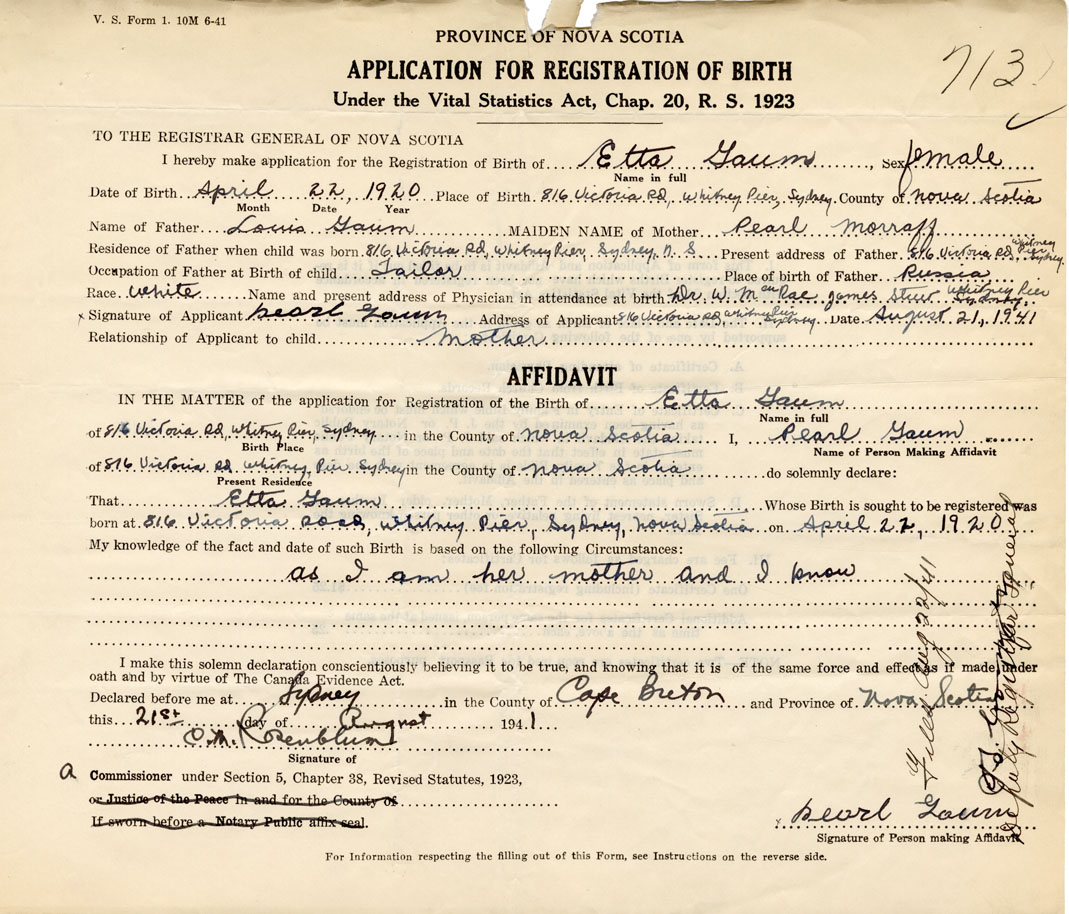 V. S. Form 1. 10M 6-41
PROVINCE OF NOVA SCOTIA
713
APPLICATION FOR REGISTRATION OF BIRTH
Under the Vital Statistics Act, Chap. 20, R. S. 1923
TO THE REGISTRAR GENERAL OF NOVA SCOTIA
I hereby make application for the Registration of Birth of Etta Gaum, Sex female
Name in full
Date of Birth April 22, 1920 Place of Birth 816 Victoria Rd, Whitney Pier, Sydney County of Nova Scotia
Month Date Year
Name of Father Louis Gaum MAIDEN NAME of Mother Pearl Morraff
Residence of Father when child was born 816 Victoria Rd, Whitney Pier, Sydney, N. S. Present address of Father 816 Victoria Rd, Whitney Pier, Sydney.
Occupation of Father at Birth of child Tailor Place of birth of Father Russia
Race White Name and present address of Physician in attendance at birth Dr. W. MacRae, James Street Whitney Pier Sydney.
x Signature of Applicant Pearl Gaum Address of Applicant 816 Victoria Rd, Whitney Pier Sydney Date August 21, 1941
Relationship of Applicant to child Mother
AFFIDAVIT
IN THE MATTER of the application for Registration of the Birth of Etta Gaum
Name in full
of 816 Victoria Rd, Whitney Pier, Sydney in the County of Nova Scotia I, Pearl Gaum
Birth Place Name of Person Making Affidavit
of 816 Victoria Rd Whitney Pier, Sydney in the County of Nova Scotia do solemnly declare:
Present Residence
That Etta Gaum Whose Birth is sought to be registered was
born at 816 Victoria Road, Whitney Pier, Sydney, Nova Scotia on April 22, 1920
My knowledge of the fact and date of such Birth is based on the following Circumstances:
as I am her mother and I know
I make this solemn declaration conscientiously believing it to be true, and knowing that it is of the same force and effect as if made under
oath and by virtue of The Canada Evidence Act.
Declared before me at Sydney in the County of Cape Breton and Province of Nova Scotia
this 21st day of August 1941
O.M. Rosenblum
Signature of
a Commissioner under Section 5, Chapter 38, Revised Statutes, 1923,
or Justice of the Peace in and for the County of
If sworn before a Notary Public affix seal.
x Pearl Gaum
Signature of Person making Affidavit
For Information respecting the filling out of this Form, see Instructions on the reverse side.
Filed Aug 22/41
Deputy Registrar General